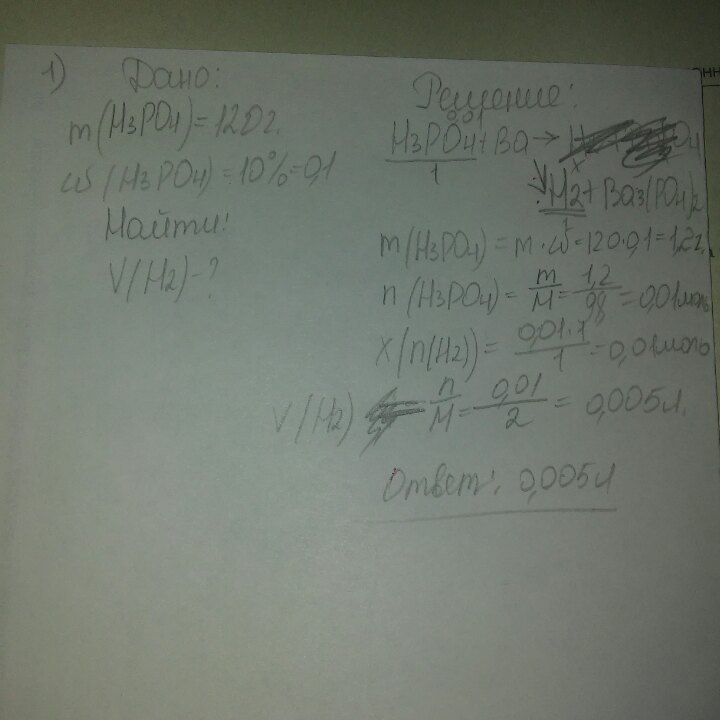 1) Дано:
m(H3PO4)=120г.
ω(H3PO4)=10%=0,1
Найти:
V(H2)-?
Решение:
0,01
H3PO4+Ba→
1
x
H2+Ba3(PO4)2
1
m(H3PO4)=m·ω=120·0,1=1,2г.
n(H3PO4)=m/M=1,2/98=0,01моль
x(n(H2))=0,01·1/1=0,01моль
V(H2) = n/M=0,01/2=0,005л.
Ответ: 0,005л